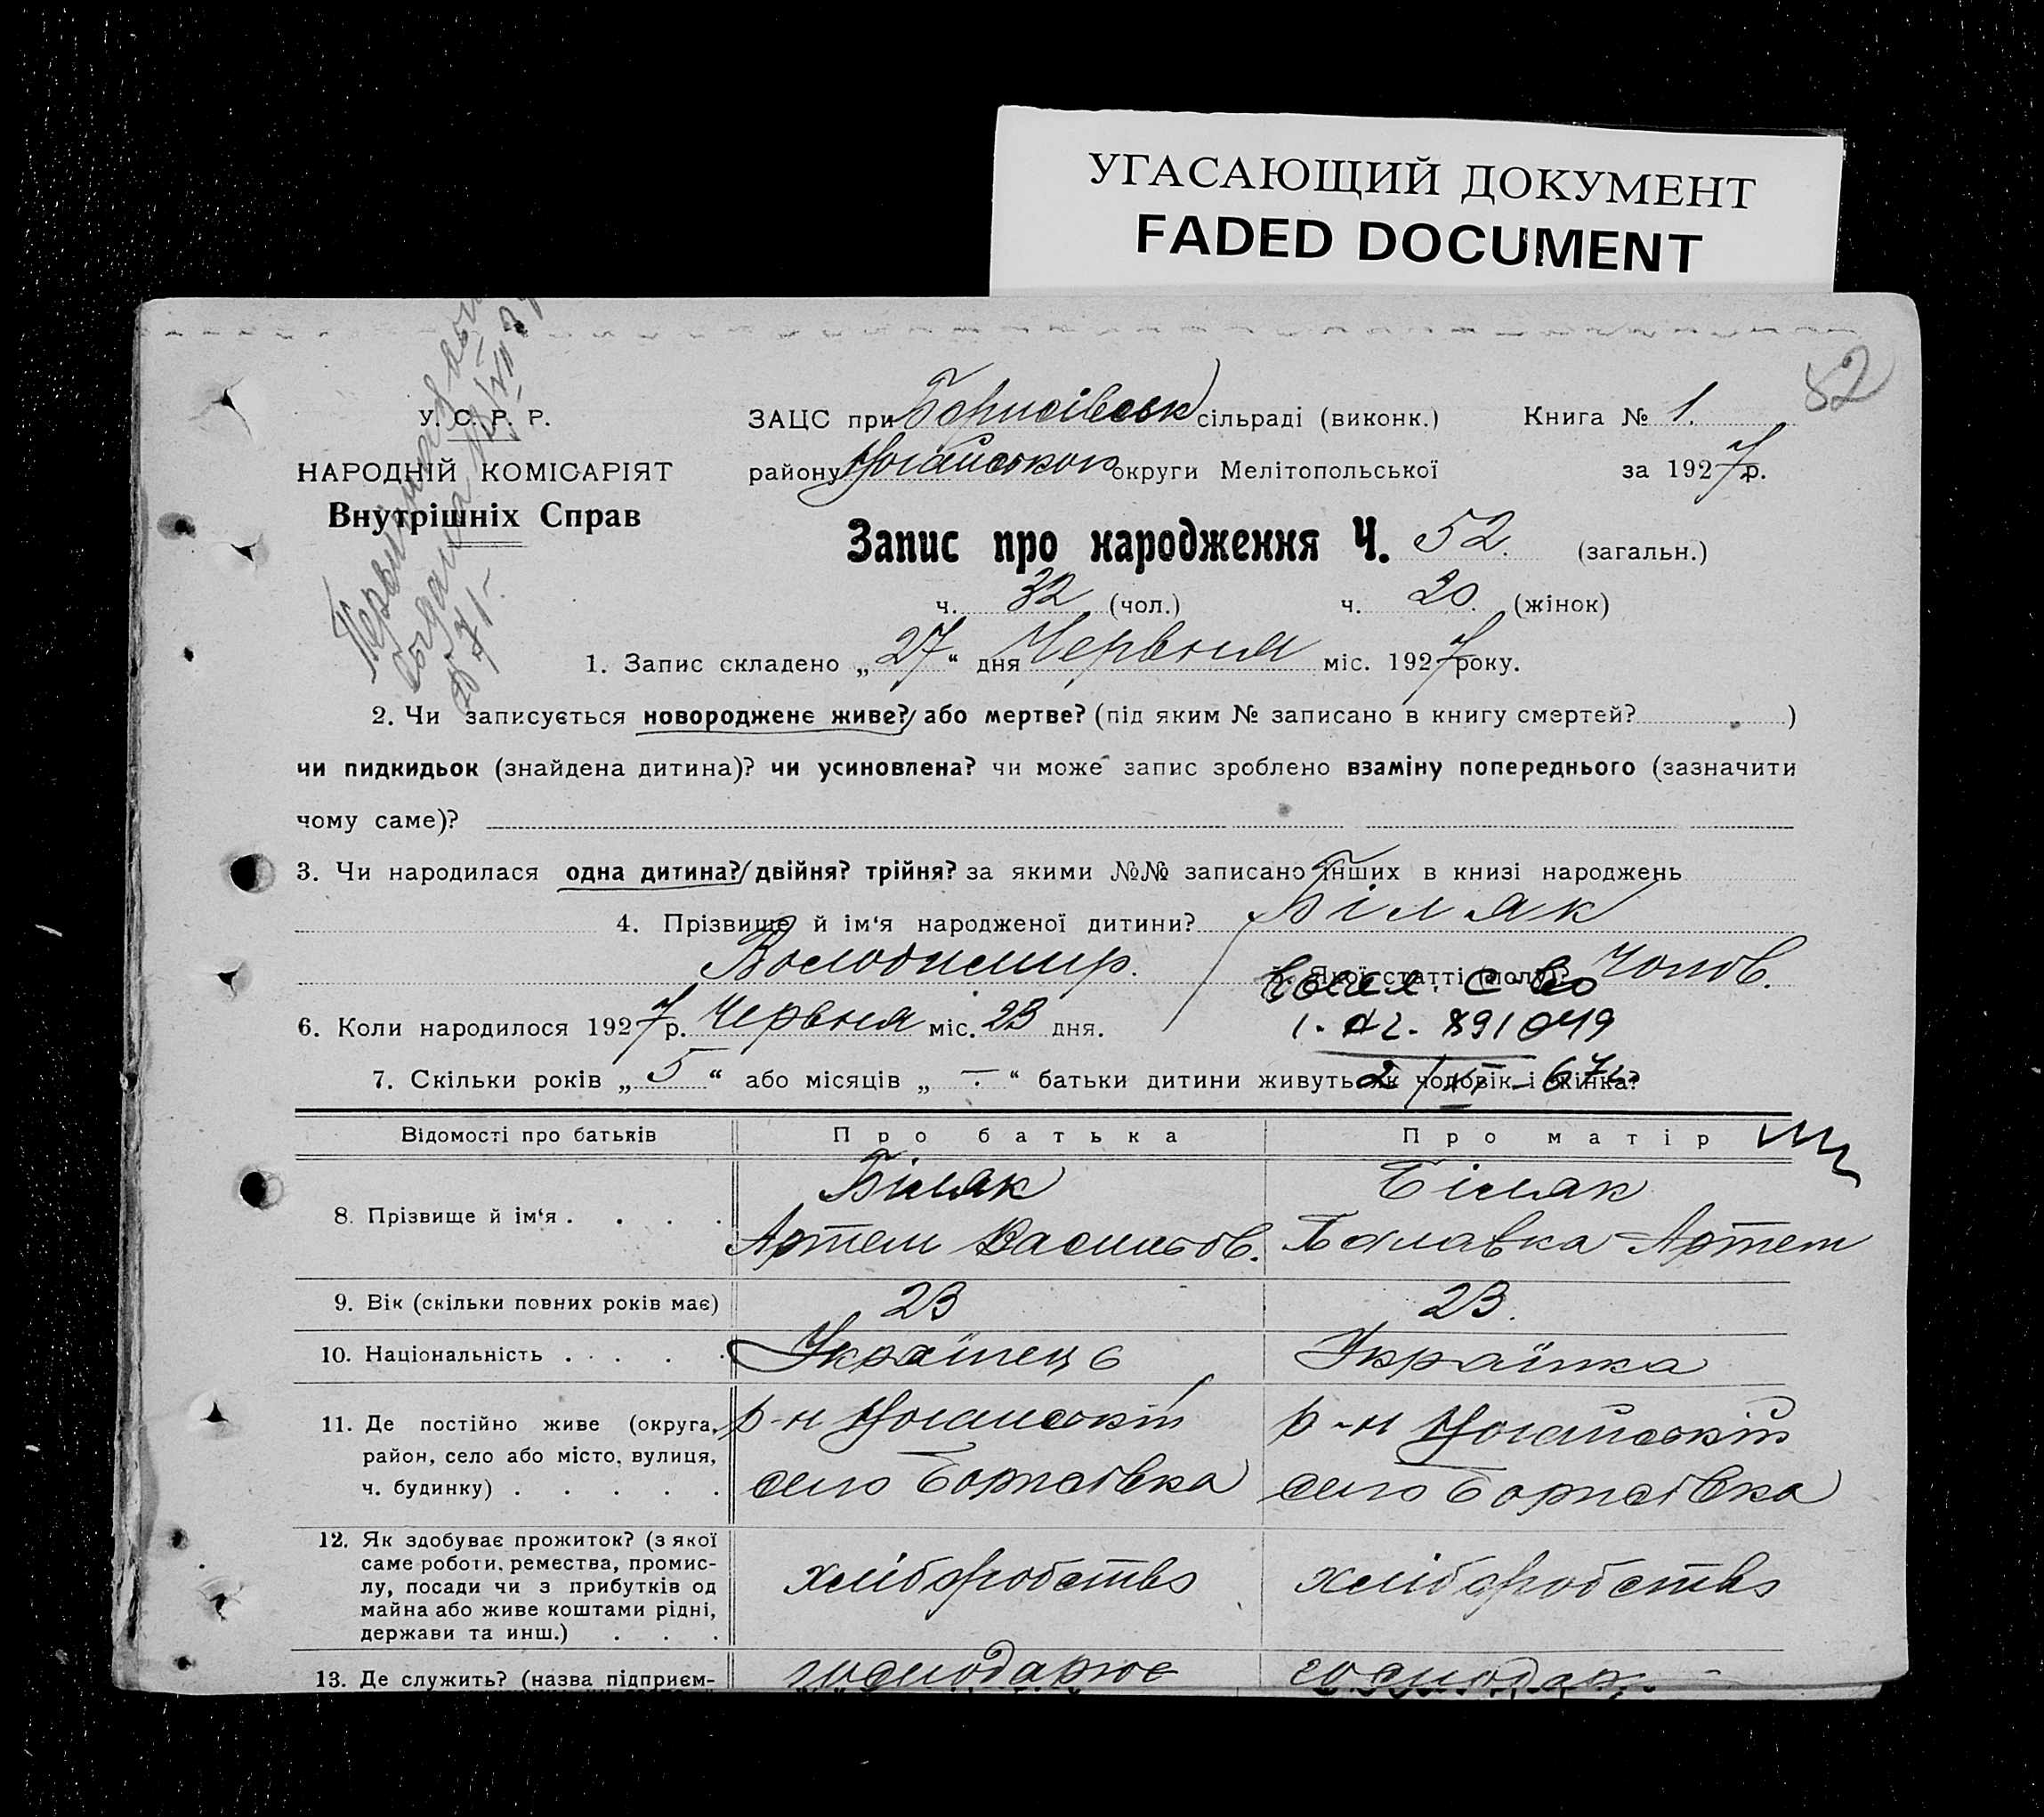 УГАСАЮЩИЙ ДОКУМЕНТ
FADED DOCUMENT
52
У. С. Р. Р.
НАРОДНІЙ КОМІСАРІЯТ
Внутрішніх Справ
ЗАЦС при Борисівськ сільраді (виконк.) Книга № 1.
району Ногайського округи Мелітопольської за 1927 р.
Запис про народження Ч. 52. (загальн.)
ч. 32 (чол.) ч. 20. (жінок)
1. Запис складено „27“ дня Червня міс. 1927 року.
2. Чи записується новороджене живе? або мертве? (під яким № записано в книгу смертей? )
чи пидкидьок (знайдена дитина)? чи усиновлена? чи може запис зроблено взаміну попереднього (зазначити
чому саме)?
3. Чи народилася одна дитина? двійня? трійня? за якими №№ записано інших в книзі народжень
4. Прізвище й ім‘я народженої дитини? Біляк
Володимир. 5. Якої статті (полу) Чолов.
6. Коли народилося 1927 р. Червня міс. 23 дня.
1. АΖ. 891049
7. Скільки років „5“ або місяців „—“ батьки дитини живуть як чоловік і жінка?
Відомості про батьків Про батька Про матір
8. Прізвище й ім‘я . . . . Біляк Біляк
Артем Васильов. Палавка Артем
9. Вік (скільки повних років має) 23 23.
10. Національність . . . . Українець Українка
11. Де постійно живе (округа, район, село або місто, вулиця, ч. будинку) . . . . . р-н Ногайський р-н Ногайський
село Борисівка село Борисівка
12. Як здобуває прожиток? (з якої
саме роботи, ремества, промис-
лу, посади чи з прибутків од
майна або живе коштами рідні,
держави та инш.) . . . хліборобство хліборобство
13. Де служить? (назва підприєм- господарює господар.